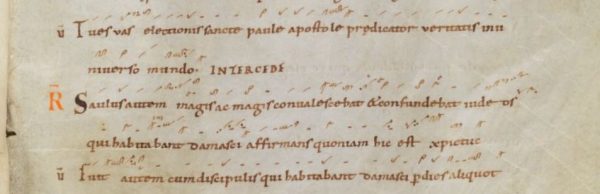 v̄ Tu es vas electionis sancte paule apostole predicator veritatis inu
niuerso mundo. INTERCEDE
R̄ Saulus autem magis ac magis conualescebat & confundebat iudeos
qui habitabant damasci affirmans quoniam hic est xpictuc
v̄ autem cum discipulis qui habitabant damasci p dies aliquot